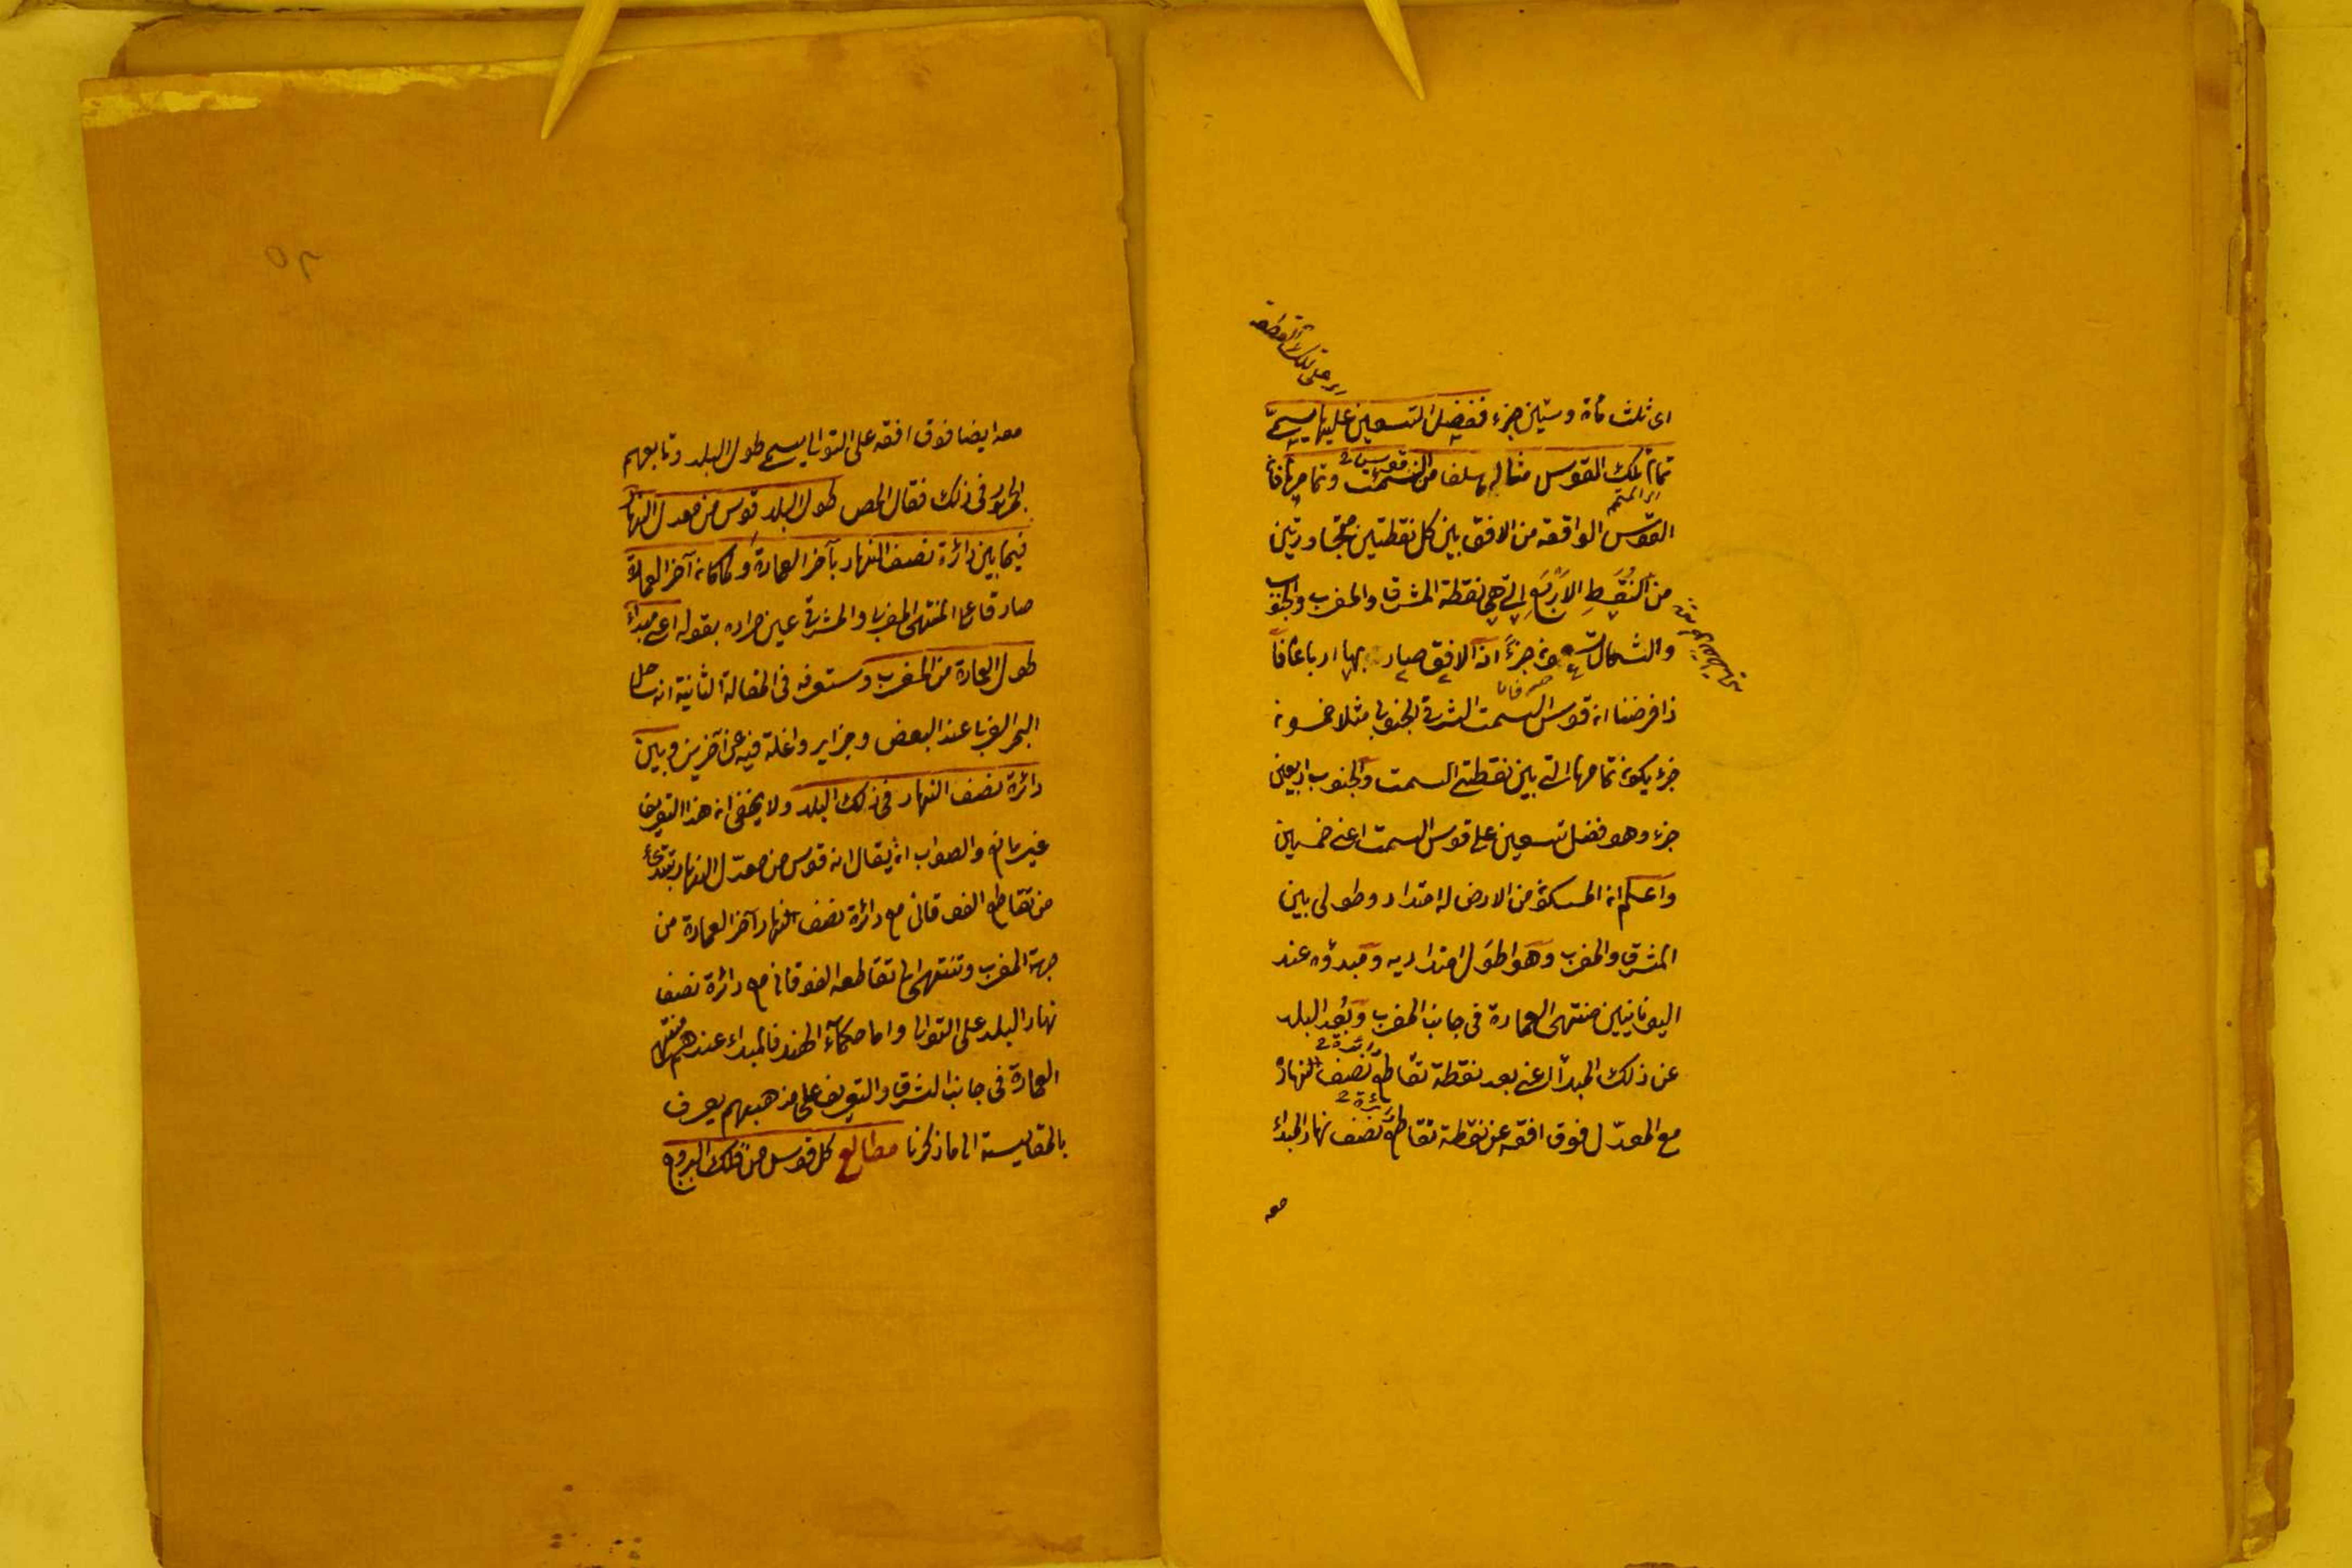 اى ثلث مأة وستين جزء ففضل التسعين عليها يسمى
تمام تلك القوس مثاله ما سلف من السمت وتمامها فان
القوس الواقعة من الافق بين كل نقطتين متجاورتين
من النقط الاربع التى هى نقطة المشرق والمغرب والجنوب
والشمال جزءً اذ الافق صار بها ارباعا فا
ذا فرضنا ان قوس السمت الشرقى الجنوبى مثلا خمسون
جزء يكون تمامها التى بين نقطتى السمت والجنوب اربعين
جزء وهو فضل تسعين على قوس السمت اعنى خمسين
واعلم ان المسكون من الارض له امتداد وطولى بين
المشرق والمغرب وهو اطول امتداديه ومبدؤه عند
اليونانيين منتهى العمارة فى جانب المغرب وبُعد البلد
عن ذلك المبدأ اعنى بعد نقطة تقاطع نصف النهار
دائرة
مع المعدّل فوق افقه عن نقطة تقاطع نصف نهار المبدأ
دائرة
معه
معه ايضا فوق افقه على التوالى يسمى طول البلد وتابعهم
الجمهور فى ذلك فقال المص طول البلد قوس من معدل النهار
فيما بين دائرة نصف النهار بآخر العمارة ولما كان آخر العمارة
صادقا على المنتهى المغربى والمشرقى عين مراده بقوله اعنى مبدأ
طول العمارة من المغرب وستعرفه فى المقالة الثانية انه ساحل
البحر الغربى عند البعض وجزاير واغلة فيه عن آخرين وبين
دائرة نصف النهار فى ذلك البلد ولا يخفى ان هذا التعريف
غير مانع والصواب ان يقال انه قوس من معدّل النهار تبتدئ
من تقاطع الفوقانى مع دائرة نصف النهار آخر العمارة من
جهة المغرب وتنتهى الى تقاطعه الفوقانى مع دائرة نصف
نهار البلد على التوالى واما حكمآء الهند فالمبداء عندهم منتهى
العمارة فى جانب الشرق والتعريف على مذهبهم يعرف
بالمقايسة الى ما ذكرنا مطالع كل قوس من فلك البروج